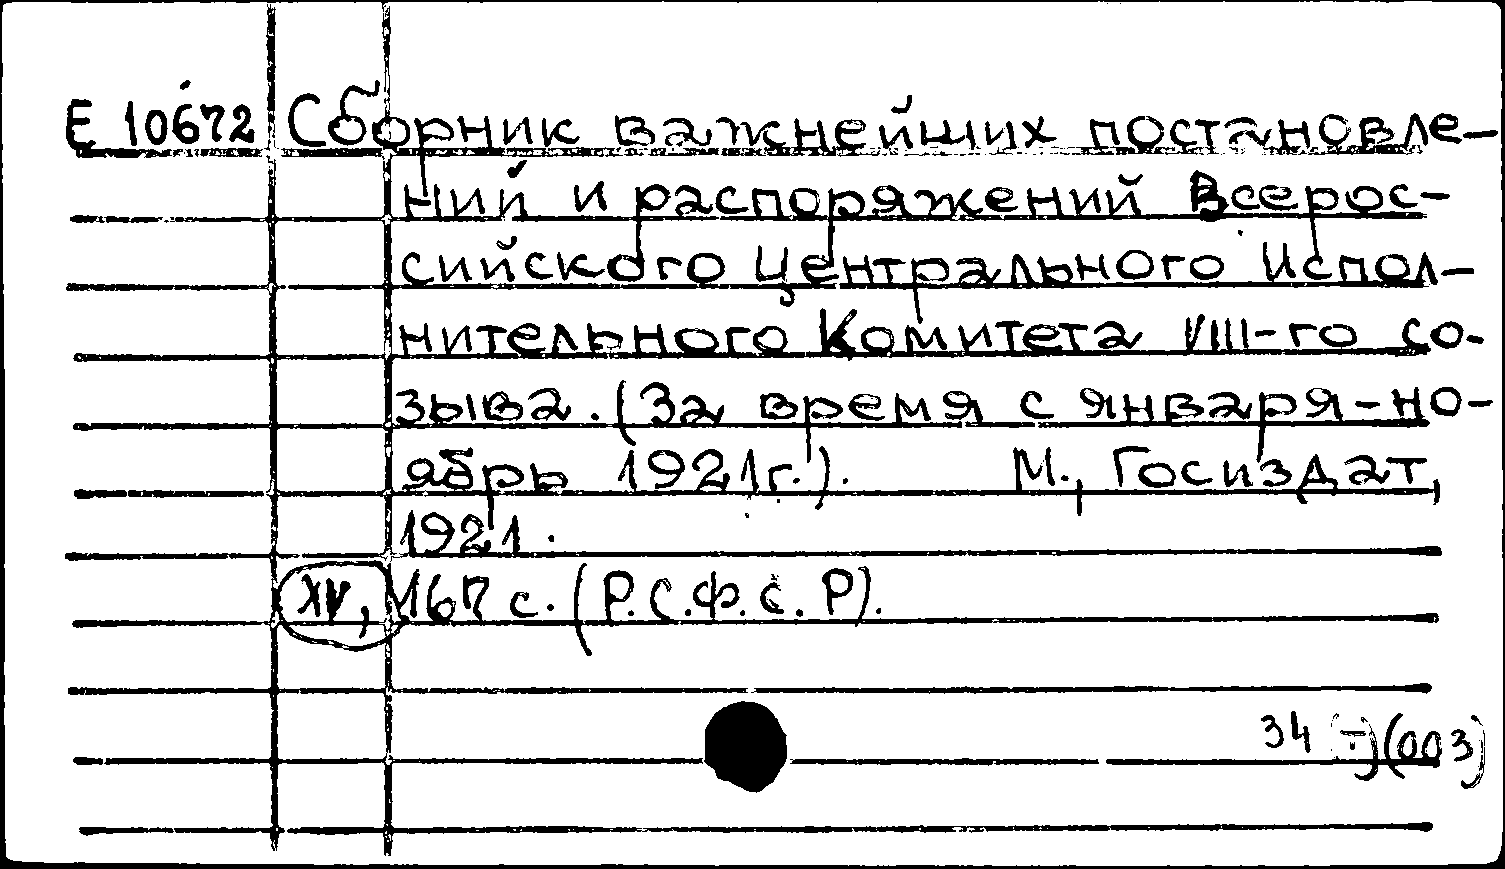 Е 10672 Сборник важнейших постановле-
ний и распоряжений Всерос-
сийского Центрального Испол-
нительного Комитета VIII-го со-
зыва. (За время с января-но-
ябрь 1921г.). М., Госиздат,
1921.
XV, 167 с. (Р.С.Ф.С.Р).
34 (003)